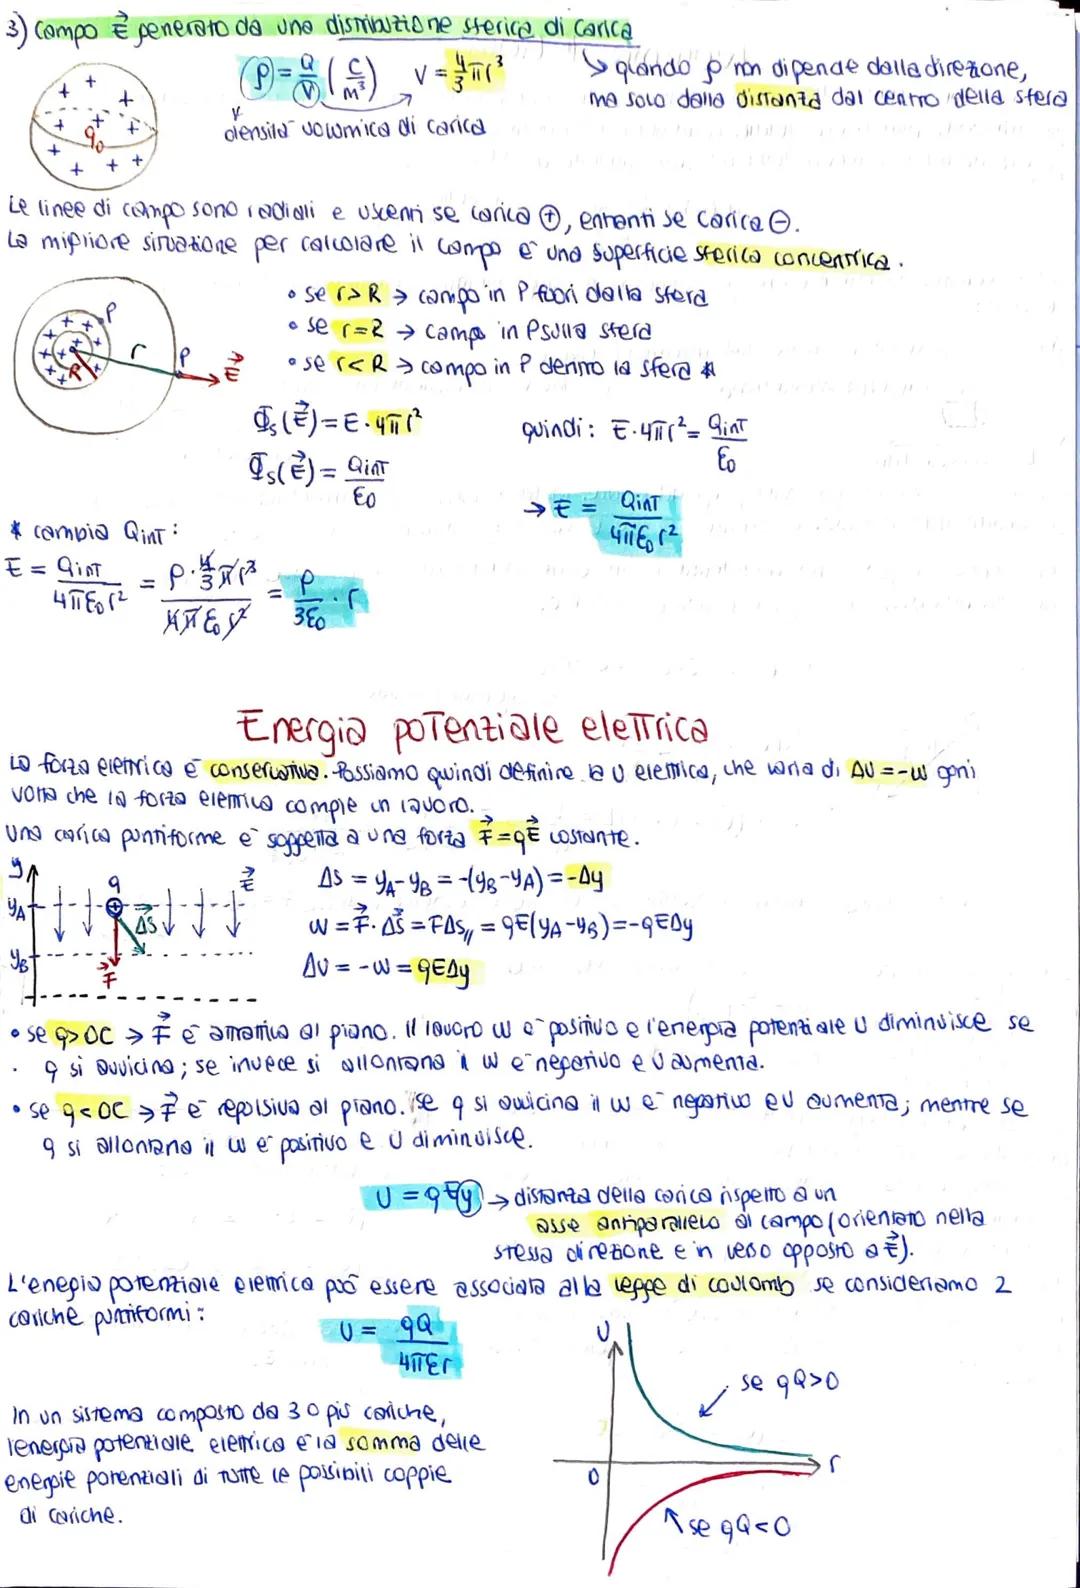 3) Campo E⃗ generato da una distribuzione sferica di carica
ρ = Q/V (C/m³) V = 4/3 πr³
↳ quando ρ non dipende dalla direzione,
ma solo dalla distanza dal centro della sfera
densità volumica di carica
q₀
Le linee di campo sono radiali e uscenti se carica ⊕, entranti se carica ⊖.
La migliore situazione per calcolare il campo è una superficie sferica concentrica.
• se r>R → campo in P fuori dalla sfera
• se r=R → campo in P sulla sfera
• se r<R → campo in P dentro la sfera *
P
r
P
R
E⃗
Φs(E⃗) = E · 4πr²
quindi: E·4πr² = Qint/ε0
Φs(E⃗) = Qint/ε0
→ E = Qint/4πε0r²
* cambia Qint:
E = Qint/4πε0r² = ρ·4/3πr³/4πε0r² = ρ/3ε0 · r
Energia potenziale elettrica
La forza elettrica è conservativa. Possiamo quindi definire la U elettrica, che varia di ΔU=-W ogni
volta che la forza elettrica compie un lavoro.
Una carica puntiforme è soggetta a una forza F⃗=qE⃗ costante.
y
q
E⃗
yA
ΔS⃗
yB
F⃗
ΔS = yA-yB = -(yB-yA) = -Δy
W = F⃗·ΔS⃗ = FΔS∥ = qE(yA-yB) = -qEΔy
ΔU = -W = qEΔy
• se q>0C → F⃗ è attrattiva al piano. Il lavoro W è positivo e l'energia potenziale U diminuisce se
q si avvicina; se invece si allontana il W è negativo e U aumenta.
• se q<0C → F⃗ è repulsiva al piano. Se q si avvicina il W è negativo e U aumenta; mentre se
q si allontana il W è positivo e U diminuisce.
U = qEy → distanza della carica rispetto a un
asse antiparallelo al campo (orientato nella
stessa direzione e in verso opposto a E⃗).
L'enegia potenziale elettrica può essere associata alla legge di Coulomb se consideriamo 2
cariche puntiformi:
U = qQ/4πεr
In un sistema composto da 3 o più cariche,
l'energia potenziale elettrica è la somma delle
energie potenziali di tutte le possibili coppie
di cariche.
U
se qQ>0
r
0
se qQ<0